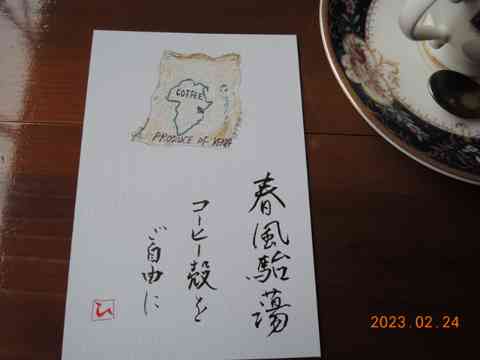 COFFEE
PRODUCE OF KENYA
春風駘蕩
コーヒー殻を
ご自由に
ひ
2023.02.24